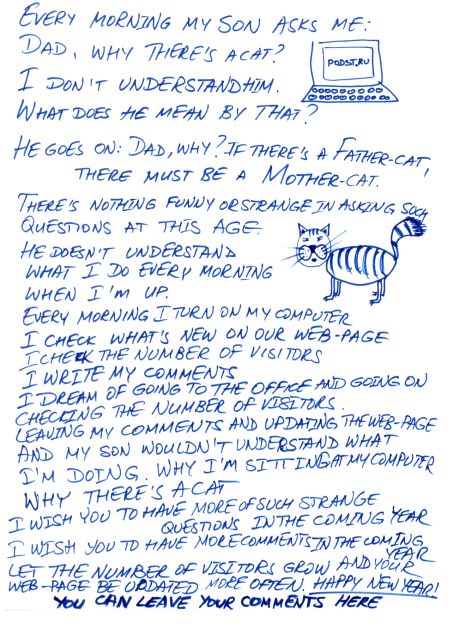 EVERY MORNING MY SON ASKS ME:
DAD, WHY THERE'S A CAT?
PODST.RU
I DON'T UNDERSTAND HIM.
WHAT DOES HE MEAN BY THAT?
HE GOES ON: DAD, WHY? IF THERE'S A FATHER-CAT,
THERE MUST BE A MOTHER-CAT.
THERE'S NOTHING FUNNY OR STRANGE IN ASKING SUCH
QUESTIONS AT THIS AGE.
HE DOESN'T UNDERSTAND
WHAT I DO EVERY MORNING
WHEN I'M UP.
EVERY MORNING I TURN ON MY COMPUTER
I CHECK WHAT'S NEW ON OUR WEB-PAGE
I CHECK THE NUMBER OF VISITORS
I WRITE MY COMMENTS
I DREAM OF GOING TO THE OFFICE AND GOING ON
CHECKING THE NUMBER OF VISITORS.
LEAVING MY COMMENTS AND UPDATING THE WEB-PAGE
AND MY SON WOULDN'T UNDERSTAND WHAT
I'M DOING. WHY I'M SITTING AT MY COMPUTER
WHY THERE'S A CAT
I WISH YOU TO HAVE MORE OF SUCH STRANGE
QUESTIONS IN THE COMING YEAR
I WISH YOU TO HAVE MORE COMMENTS IN THE COMING
YEAR
LET THE NUMBER OF VISITORS GROW AND YOUR
WEB-PAGE BE UPDATED MORE OFTEN. HAPPY NEW YEAR!
YOU CAN LEAVE YOUR COMMENTS HERE